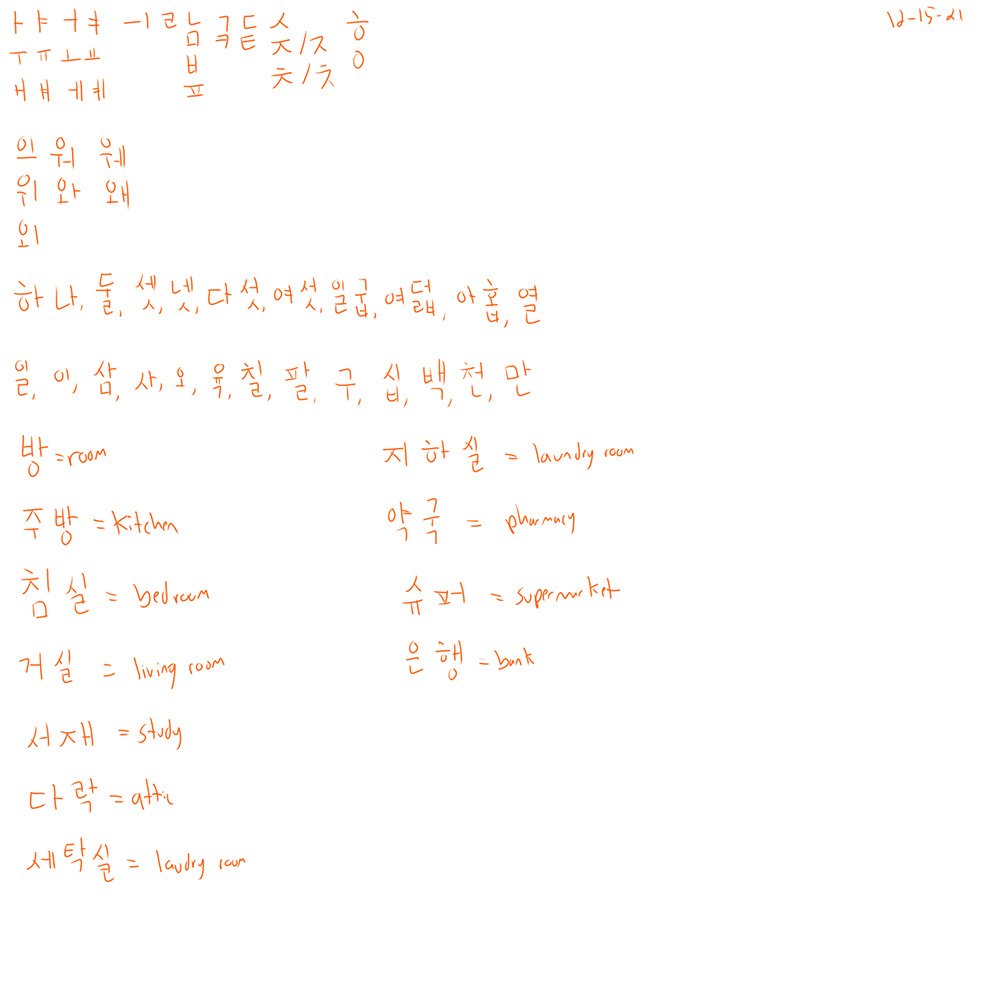 ㅏ ㅑ ㅓ ㅕ ㅡ ㅣ ㄹ ㄴ ㄱ ㄷ ㅅ ㅎ 12-15-21
ㅜ ㅠ ㅗ ㅛ ㅁ ㅋ ㅌ ㅈ/ㅈ ㅇ
ㅐ ㅒ ㅔ ㅖ ㅂ ㅊ/ㅊ
ㅍ
의 워 웨
위 와 왜
외
하나, 둘, 셋, 넷, 다섯, 여섯, 일굽, 여덟, 아홉, 열
일, 이, 삼, 사, 오, 육, 칠, 팔, 구, 십, 백, 천, 만
방 = room
주방 = kitchen
침실 = bedroom
거실 = living room
서재 = study
다락 = attic
세탁실 = laudry room
지하실 = laundry room
약국 = pharmacy
슈퍼 = supermarket
은행 = bank